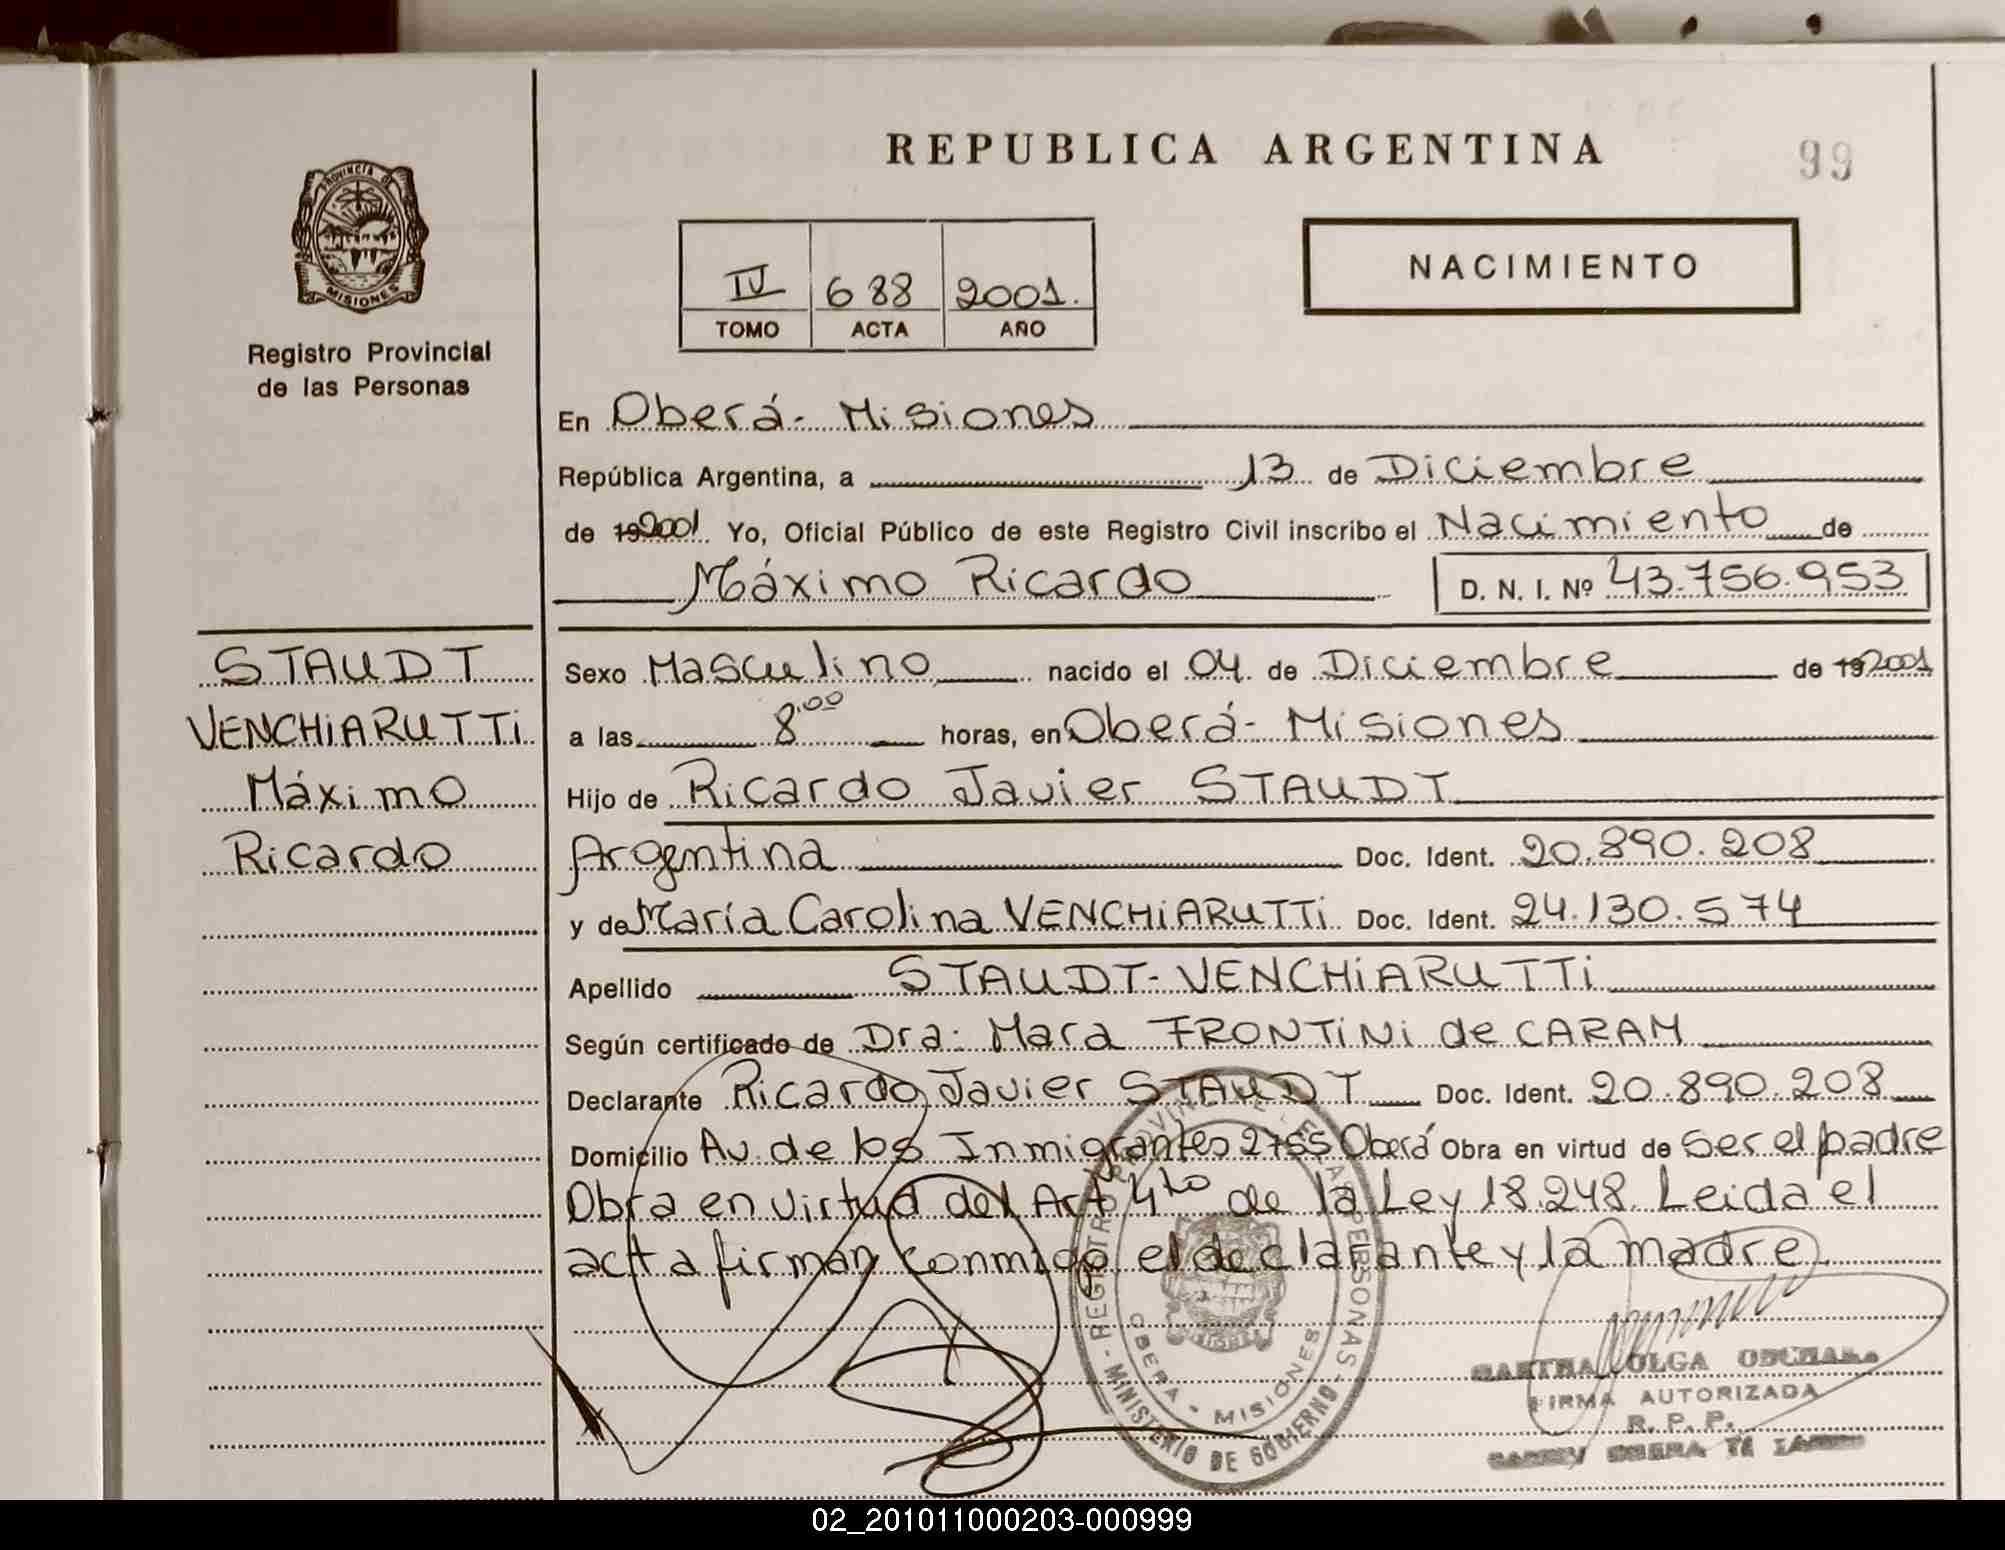 REPUBLICA ARGENTINA
99
PROVINCIA DE
MISIONES
Registro Provincial
de las Personas
NACIMIENTO
IV 688 2001.
TOMO ACTA AÑO
En Oberá - Misiones
República Argentina, a 13 de Diciembre
de 192001 Yo, Oficial Público de este Registro Civil inscribo el Nacimiento de
Máximo Ricardo D. N. I. Nº 43.756.953
STAUDT
VENCHiARUTTi
Máximo
Ricardo
Sexo Masculino nacido el 04 de Diciembre de 192001
a las 8:00 horas, en Oberá - Misiones
Hijo de Ricardo Javier STAUDT
Argentina Doc. Ident. 20.890.208
y de María Carolina VENCHiARUTTi Doc. Ident. 24.130.574
Apellido STAUDT - VENCHiARUTTi
Según certificado de Dra: Mara FRONTiNi de CARAM
Declarante Ricardo Javier STAUDT Doc. Ident. 20.890.208
Domicilio Av. de los Inmigrantes 2755 Oberá Obra en virtud de Ser el padre
Obra en virtud del Art 4to de la Ley 18.248. Leida el
acta firman conmigo el declarante y la madre
REGISTRO PROVINCIAL DE LAS PERSONAS - MINISTERIO DE GOBIERNO -
OBERA - MISIONES
OLGA
FIRMA AUTORIZADA
R. P. P.
02_201011000203-000999